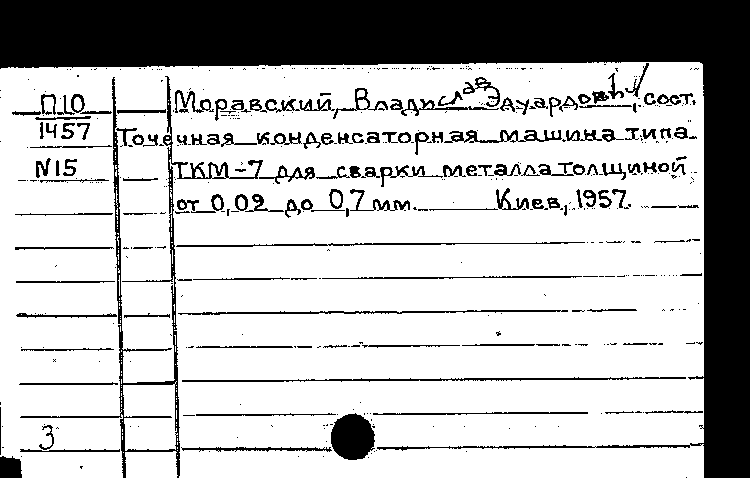 П10 Моравский, Владислав Эдуардович, сост.
1457 Точечная конденсаторная машина типа
N15 ТКМ-7 для сварки металла толщиной
от 0,09 до 0,7 мм. Киев, 1957.
3